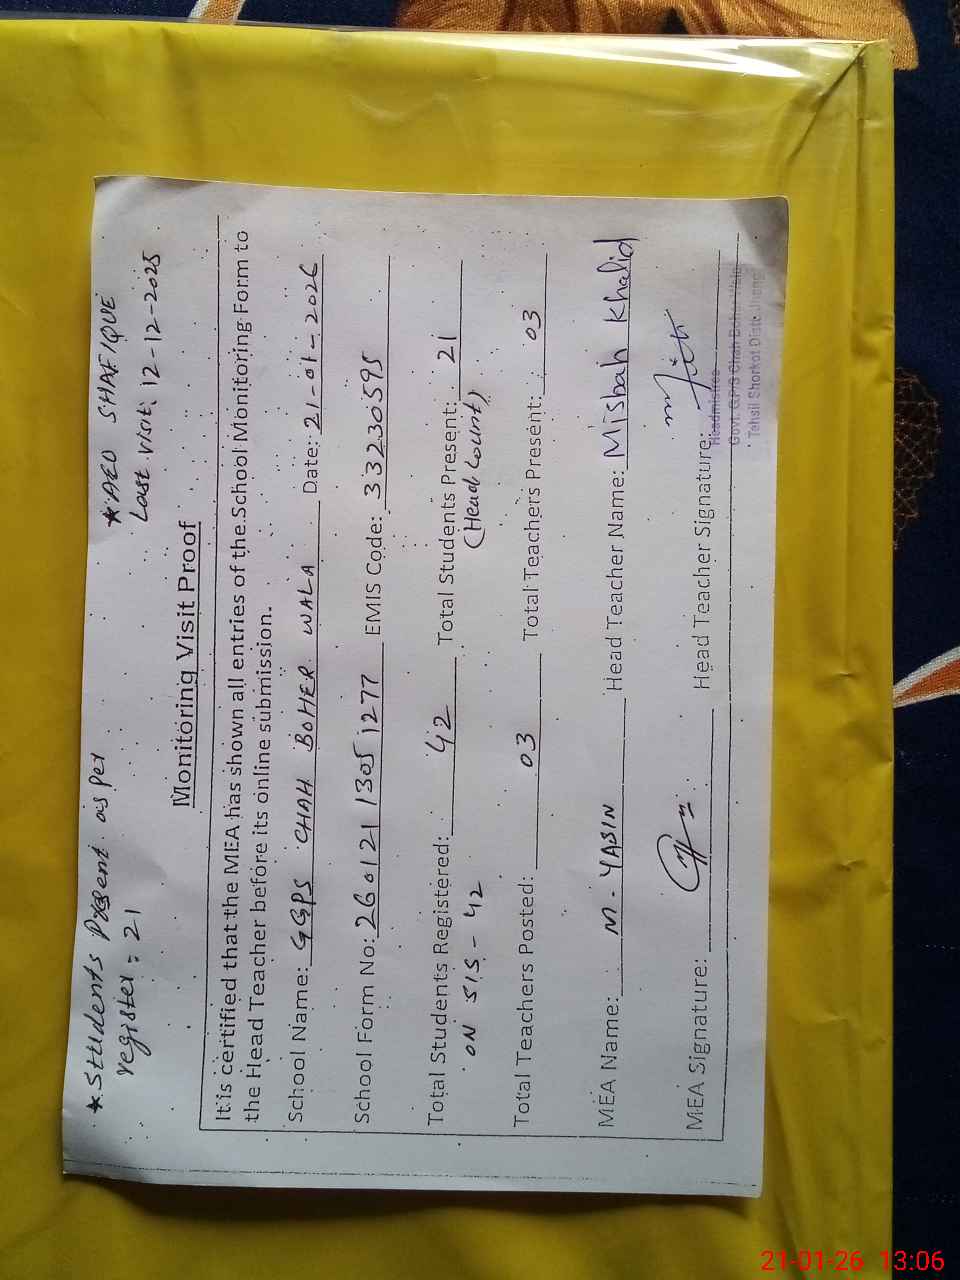 * Students Present as per
register = 21
* AEO SHAFIQUE
Last visit 12-12-2025
Monitoring Visit Proof
It is certified that the MEA has shown all entries of the School Monitoring Form to
the Head Teacher before its online submission.
School Name: GGPS CHAH BOHER WALA Date: 21-01-2026
School Form No: 260121 1305 1277 EMIS Code: 33230595
Total Students Registered: 42 Total Students Present: 21
ON SIS - 42 (Head Count)
Total Teachers Posted: 03 Total Teachers Present: 03
MEA Name: M. YASIN Head Teacher Name: Misbah Khalid
MEA Signature: Head Teacher Signature:
Headmistress
Govt. GP/S Chah
Tehsil Shorkot Distt: Jhang
21-01-26 13:06